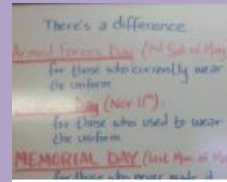 There's a difference
Armed Forces Day (3rd Sat of May
for those who currently wear
the uniform.
Day (Nov 11th).
for those who used to wear
the uniform.
MEMORIAL DAY (last Mon of Ma
for those who never made it